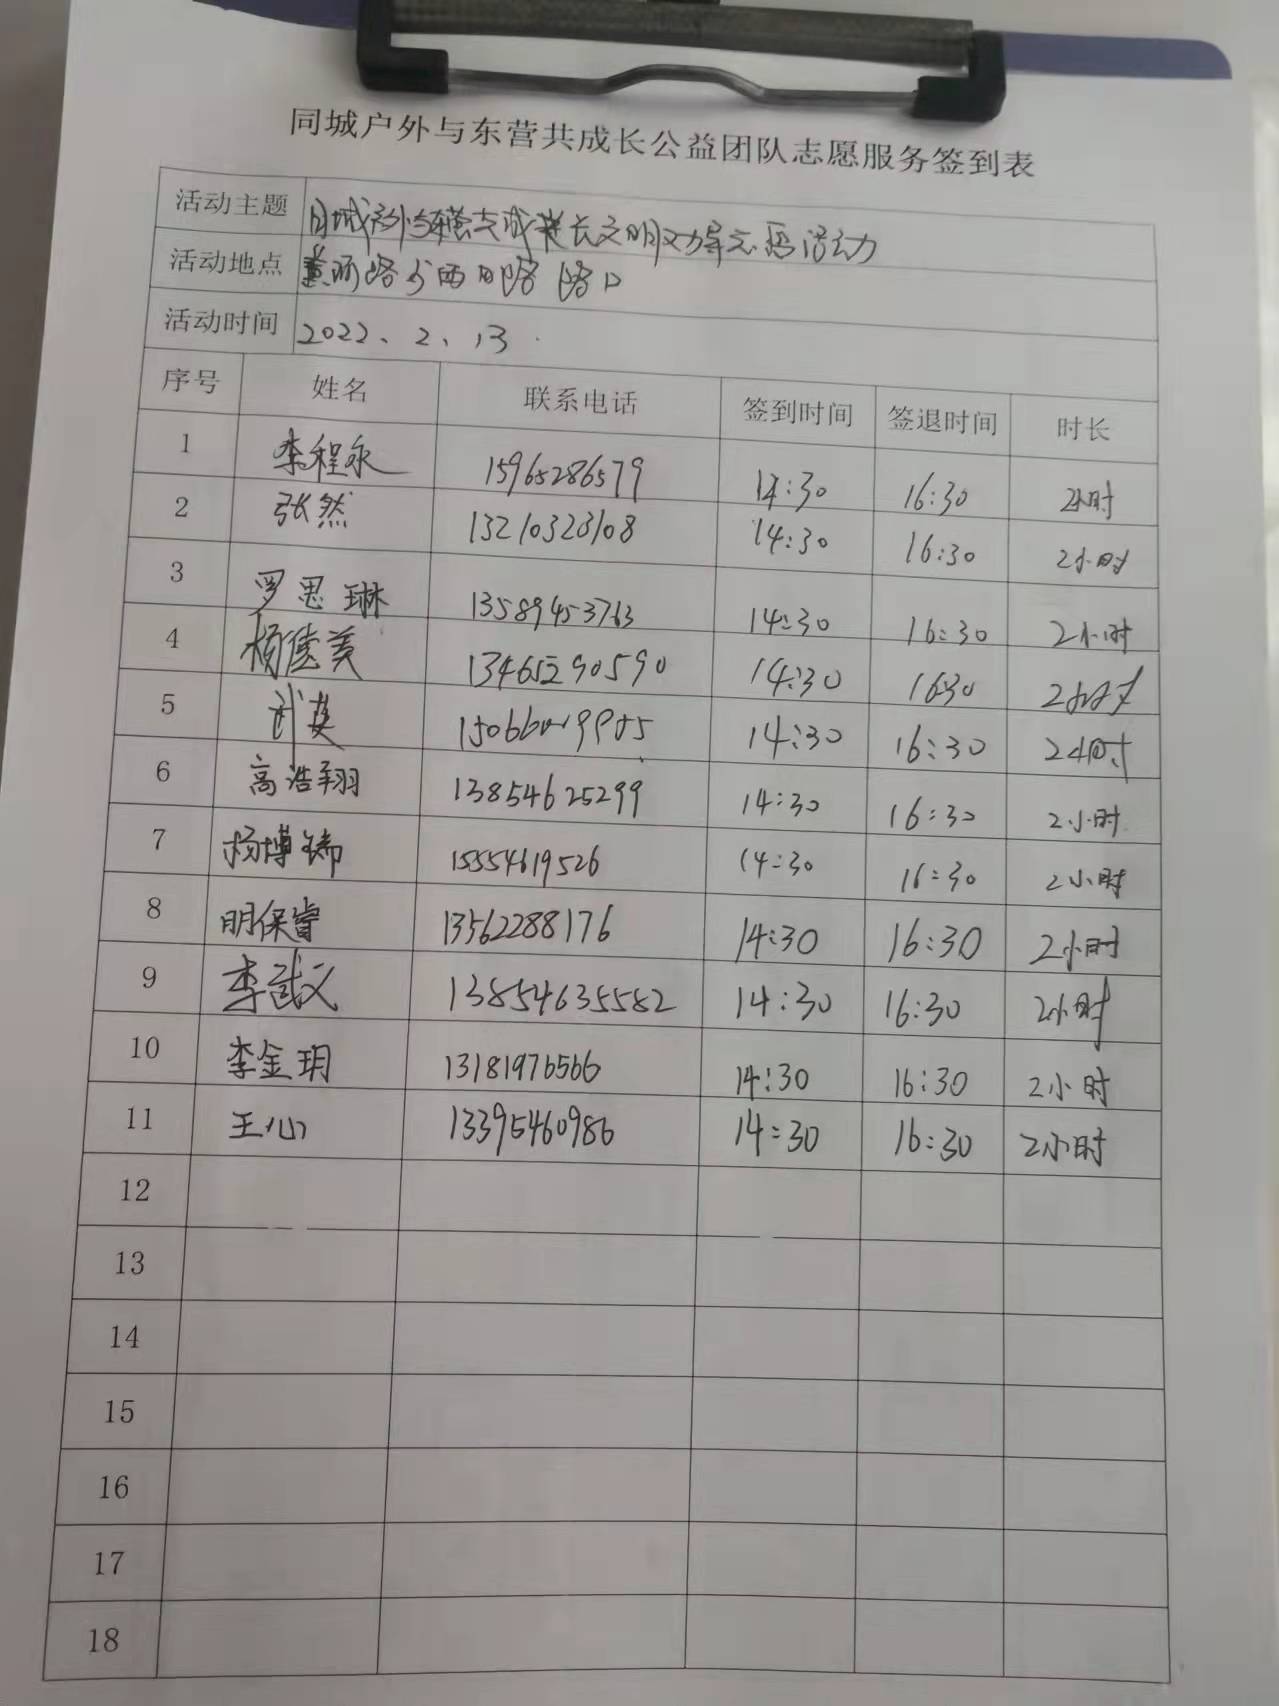 同城户外与东营共成长公益团队志愿服务签到表
活动主题 同城户外与东营共成长文明劝导志愿活动
活动地点 黄河路与西四路路口
活动时间 2022、2、13.
序号 姓名 联系电话 签到时间 签退时间 时长
1 李程永 15965286579 14:30 16:30 2小时
2 张然 13210323108 14:30 16:30 2小时
3 罗思琳 13589453763 14:30 16:30 2小时
4 杨佳美 13465290590 14:30 16:30 2小时
5 武英 14:30 16:30 2小时
6 高浩翔 13854625299 14:30 16:30 2小时
7 杨博锦 15554619526 14:30 16:30 2小时
8 明保睿 13562288176 14:30 16:30 2小时
9 李武义 13854635582 14:30 16:30 2小时
10 李金玥 13181976566 14:30 16:30 2小时
11 王心 13395460986 14:30 16:30 2小时
12
13
14
15
16
17
18